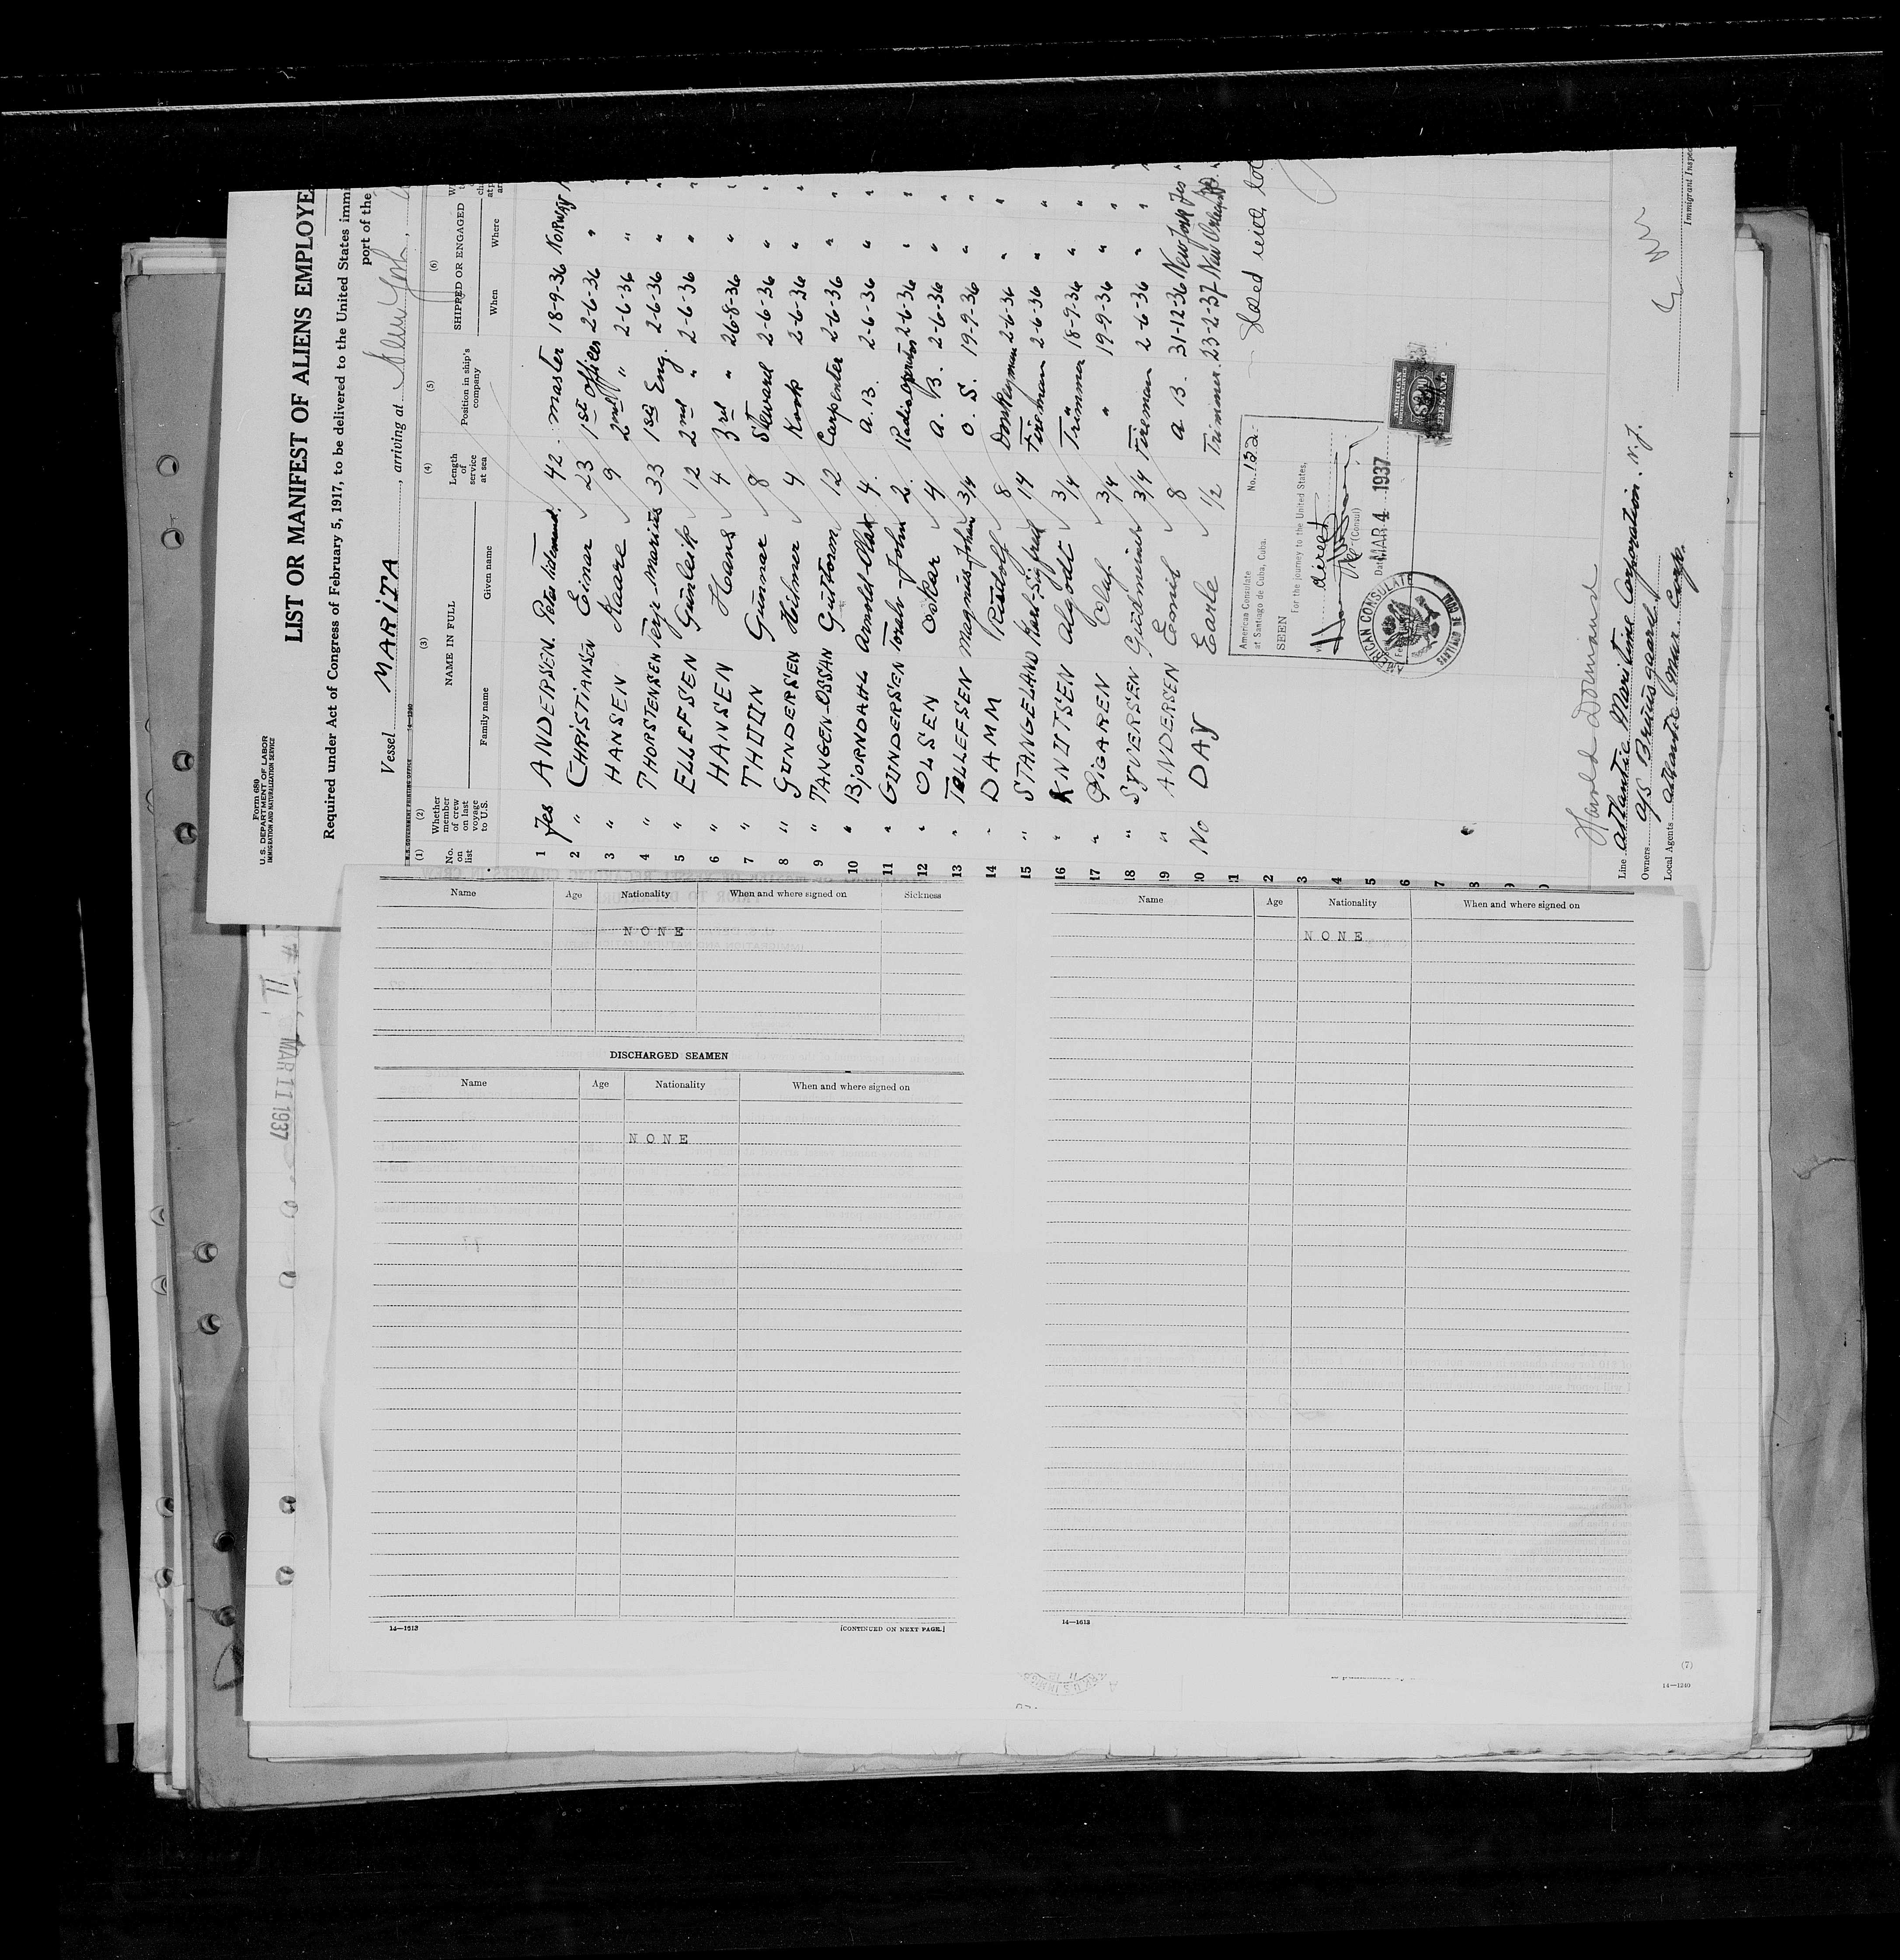 Form 680
U. S. DEPARTMENT OF LABOR
IMMIGRATION AND NATURALIZATION SERVICE
LIST OR MANIFEST OF ALIENS EMPLOYE
Required under Act of Congress of February 5, 1917, to be delivered to the United States immi
port of the
Vessel MARITA, arriving at New York,
U. S. GOVERNMENT PRINTING OFFICE 14—1240
(1) (2) (3) (4) (5) (6)
No. on list Whether member of crew on last voyage to U.S. NAME IN FULL Length of service at sea Position in ship's company SHIPPED OR ENGAGED
Family name Given name When Where
1 Yes ANDERSEN. Peter 42. master 18-9-36 NORWAY
2 " CHRISTIANSEN Einar 23 1st officer 2-6-36 "
3 " HANSEN Kaare 9 2nd " 2-6-36 "
4 " THORSTENSEN Terje-Marius 33 1st Eng. 2-6-36 "
5 " ELLEFSEN Gunleik 12 2nd " 2-6-36 "
6 " HANSEN Hans 4 3rd " 26-8-36 "
7 " THUUN Gunnar 8 Steward 2-6-36 "
8 " GUNDERSEN Hilmer 4 Kock 2-6-36 "
9 " TANGEN-OSSAN Guttorm 12 Carpenter 2-6-36 "
10 " BJORNDAHL Arnold-Olav 4. A.B. 2-6-36 "
11 " GUNDERSEN John 2. Radiooperator 2-6-36 "
12 " OLSEN Oskar 4 A.B. 2-6-36 "
13 " TOLLEFSEN Magnus-Johan 3/4 O.S. 19-9-36 "
14 " DAMM Rudolf 8 Donkeyman 2-6-36 "
15 " STANGELAND Karl-Sigfred 14 Fireman 2-6-36 "
16 " KNUTSEN Algodt 3/4 Trimmer 18-9-36 "
17 " ØIGAREN Oluf 3/4 " 19-9-36 "
18 " SYVERSEN Gudmund 3/4 Firemen 2-6-36 "
19 " ANDERSEN Emil 8 A.B. 31-12-36 New York Yes
20 No DAY Earle 1/2 Trimmer. 23-2-37 New Orleans No.
21
2
3
4
5
6
7
8
9
0
American Consulate
at Santiago de Cuba, Cuba. No. 122
SEEN
For the journey to the United States,
direct
(Consul)
Date MAR 4 1937
AMERICAN CONSULATE
SANTIAGO DE CUBA
AMERICAN
FEE STAMP
Line Atlantic Maritime Corporation. N.J.
Owners A/S Bruusgaard
Local Agents Atlantic Mar. Corp.
Immigrant Inspec
MAR 11 1937
Name Age Nationality When and where signed on Sickness
NONE
DISCHARGED SEAMEN
Name Age Nationality When and where signed on
NONE
14—1613 [CONTINUED ON NEXT PAGE.]
Name Age Nationality When and where signed on
NONE
14—1613
(7)
14—1240